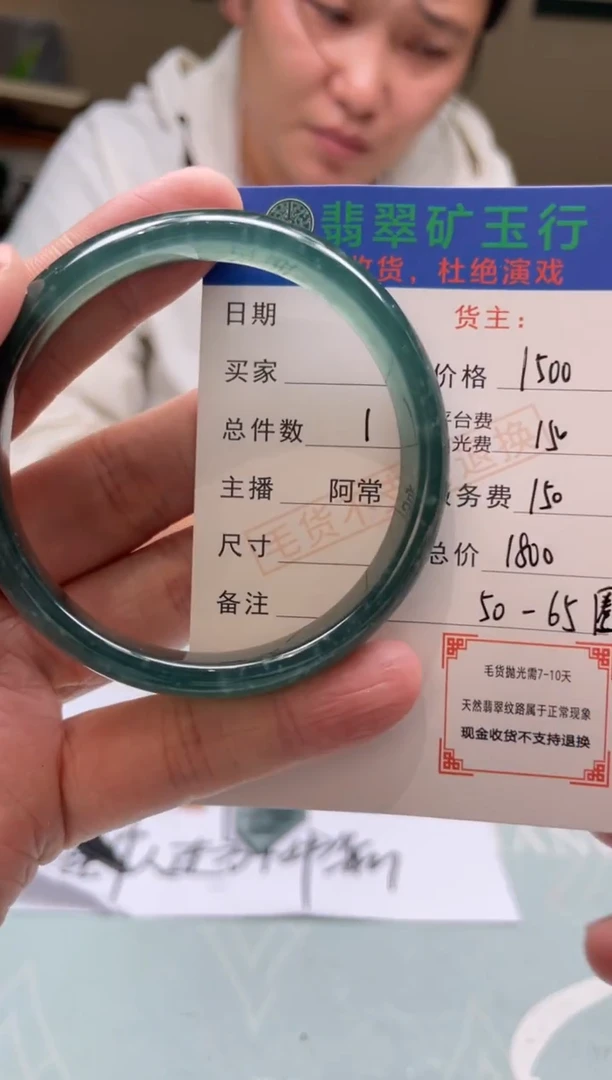 翡翠矿玉行
收货，杜绝演戏
日期
货主：
买家
价格 1500
总件数 1
平台费
光费 150
主播 阿常
服务费 150
尺寸
总价 1800
备注 50-65圈
毛货抛光需7-10天
天然翡翠纹路属于正常现象
现金收货不支持退换
毛货不
退换